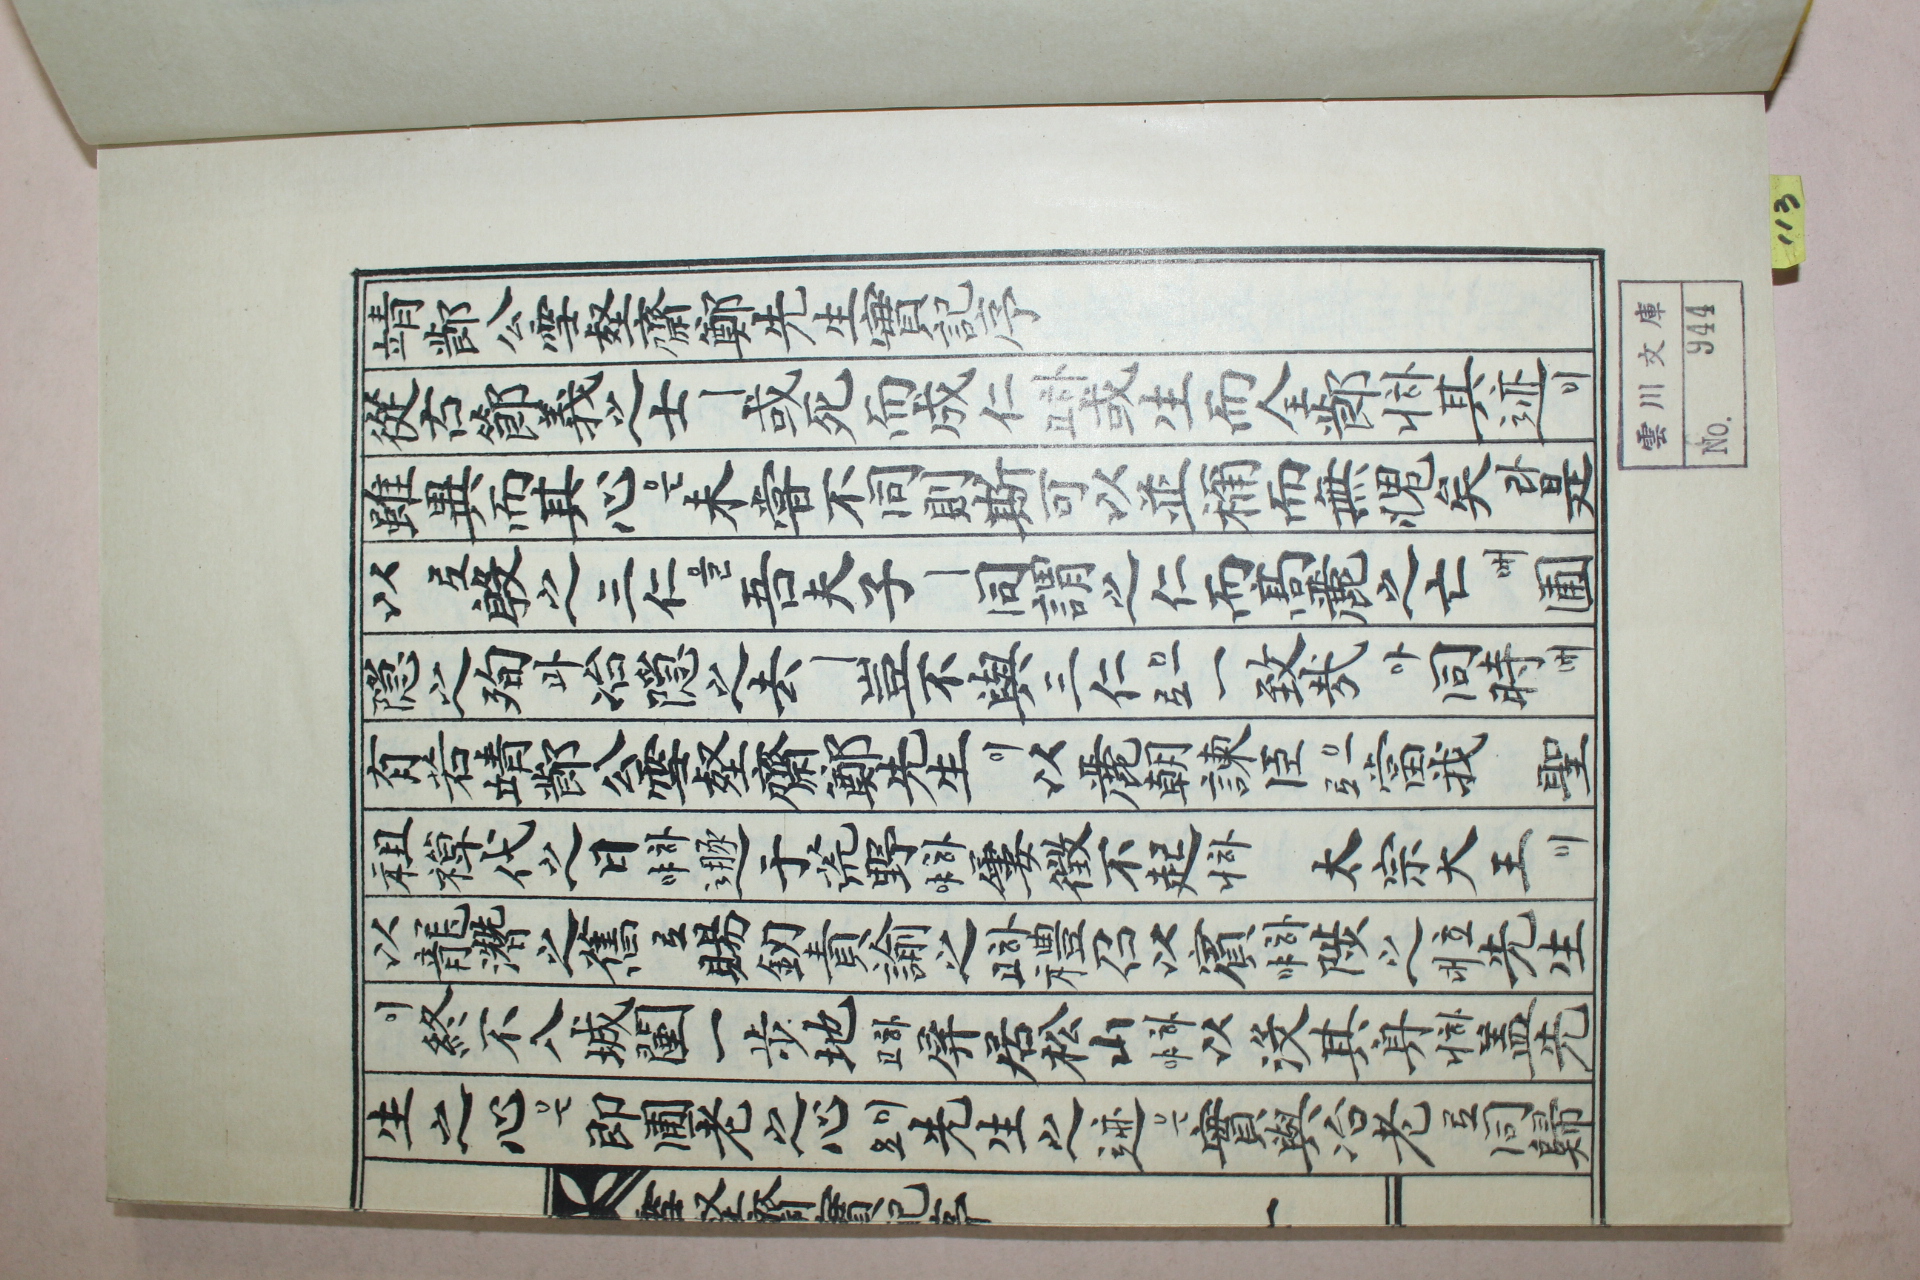 靖節公雪壑齋鄭先生實記序
從古節義之士ㅣ或死而成仁하며或生而全節하니其迹이
雖異而其心은未嘗不同則斯可以並稱而無愧矣라是
以로殷之三仁을吾夫子ㅣ同謂之仁而高麗之亡애圃
隱之殉과冶隱之去ㅣ豈不與三仁으로一致哉아同時에
有若靖節公雪壑齋鄭先生이以麗朝諫臣으로當我 聖
祖禪代之日하야遯于荒野하야屢徵不起하니 太宗大王이
以龍潛之舊로賜劒責諭之하며禮召以賓하야陟之先生
이終不入城闉一步地하고屛居松山하야以沒其身하니蓋先
生之心은卽圃老之心이오先生之迹은實與冶老로同歸
雪壑齋實記序 一
雲川文庫
No. 944
113